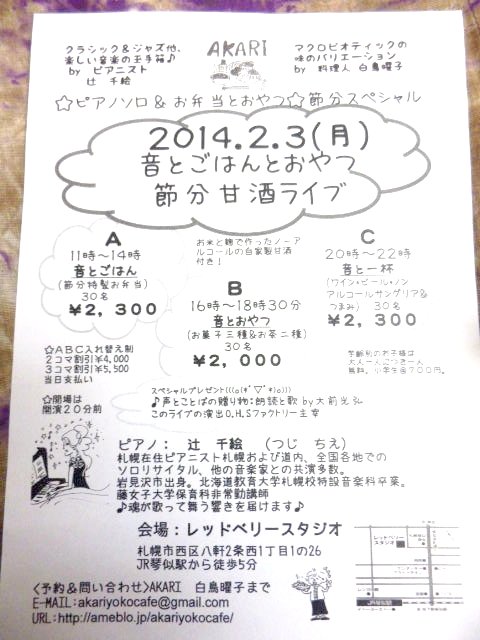 クラシック＆ジャズ他、
楽しい音楽の玉手箱♪
by ピアニスト
辻 千絵
AKARI
マクロビオティックの
味のバリエーション
by 料理人 白鳥曜子
☆ピアノソロ＆お弁当とおやつ☆節分スペシャル
2014.2.3(月)
音とごはんとおやつ
節分甘酒ライブ
A
11時～14時
音とごはん
(節分特製お弁当)
30名
￥2,300
お米と麹で作ったノーア
ルコールの自家製甘酒
付き！
B
16時～18時30分
音とおやつ
(お菓子三種＆お茶二種)
30名
￥2,000
C
20時～22時
音と一杯
(ワイン・ビール・ノン
アルコールサングリア＆
つまみ) 30名
￥2,300
☆ABC入れ替え制
2コマ割引￥4,000
3コマ割引￥5,500
当日支払い
学齢前のお子様は
大人一人につき一人
無料。小学生６７００円。
☆開場は
開演20分前
スペシャルプレゼント(((o(*ﾟ▽ﾟ*)o)))
♪声とことばの贈り物:朗読と歌 by大前光弘
このライブの演出O.H.Sファクトリー主宰
ピアノ： 辻 千絵 (つじ ちえ)
札幌在住ピアニスト札幌および道内、全国各地での
ソロリサイタル、他の音楽家との共演多数。
岩見沢市出身。北海道教育大学札幌校特設音楽科卒業。
藤女子大学保育科非常勤講師
♪魂が歌って舞う響きを届けます♪
会場：レッドベリースタジオ
札幌市西区八軒2条西1丁目1の26
JR琴似駅から徒歩5分
レッドベリー
スタジオ
JR琴似駅
<予約＆問い合わせ>AKARI 白鳥曜子まで
E-MAIL:akariyokocafe@gmail.com
URL:http://ameblo.jp/akariyokocafe/